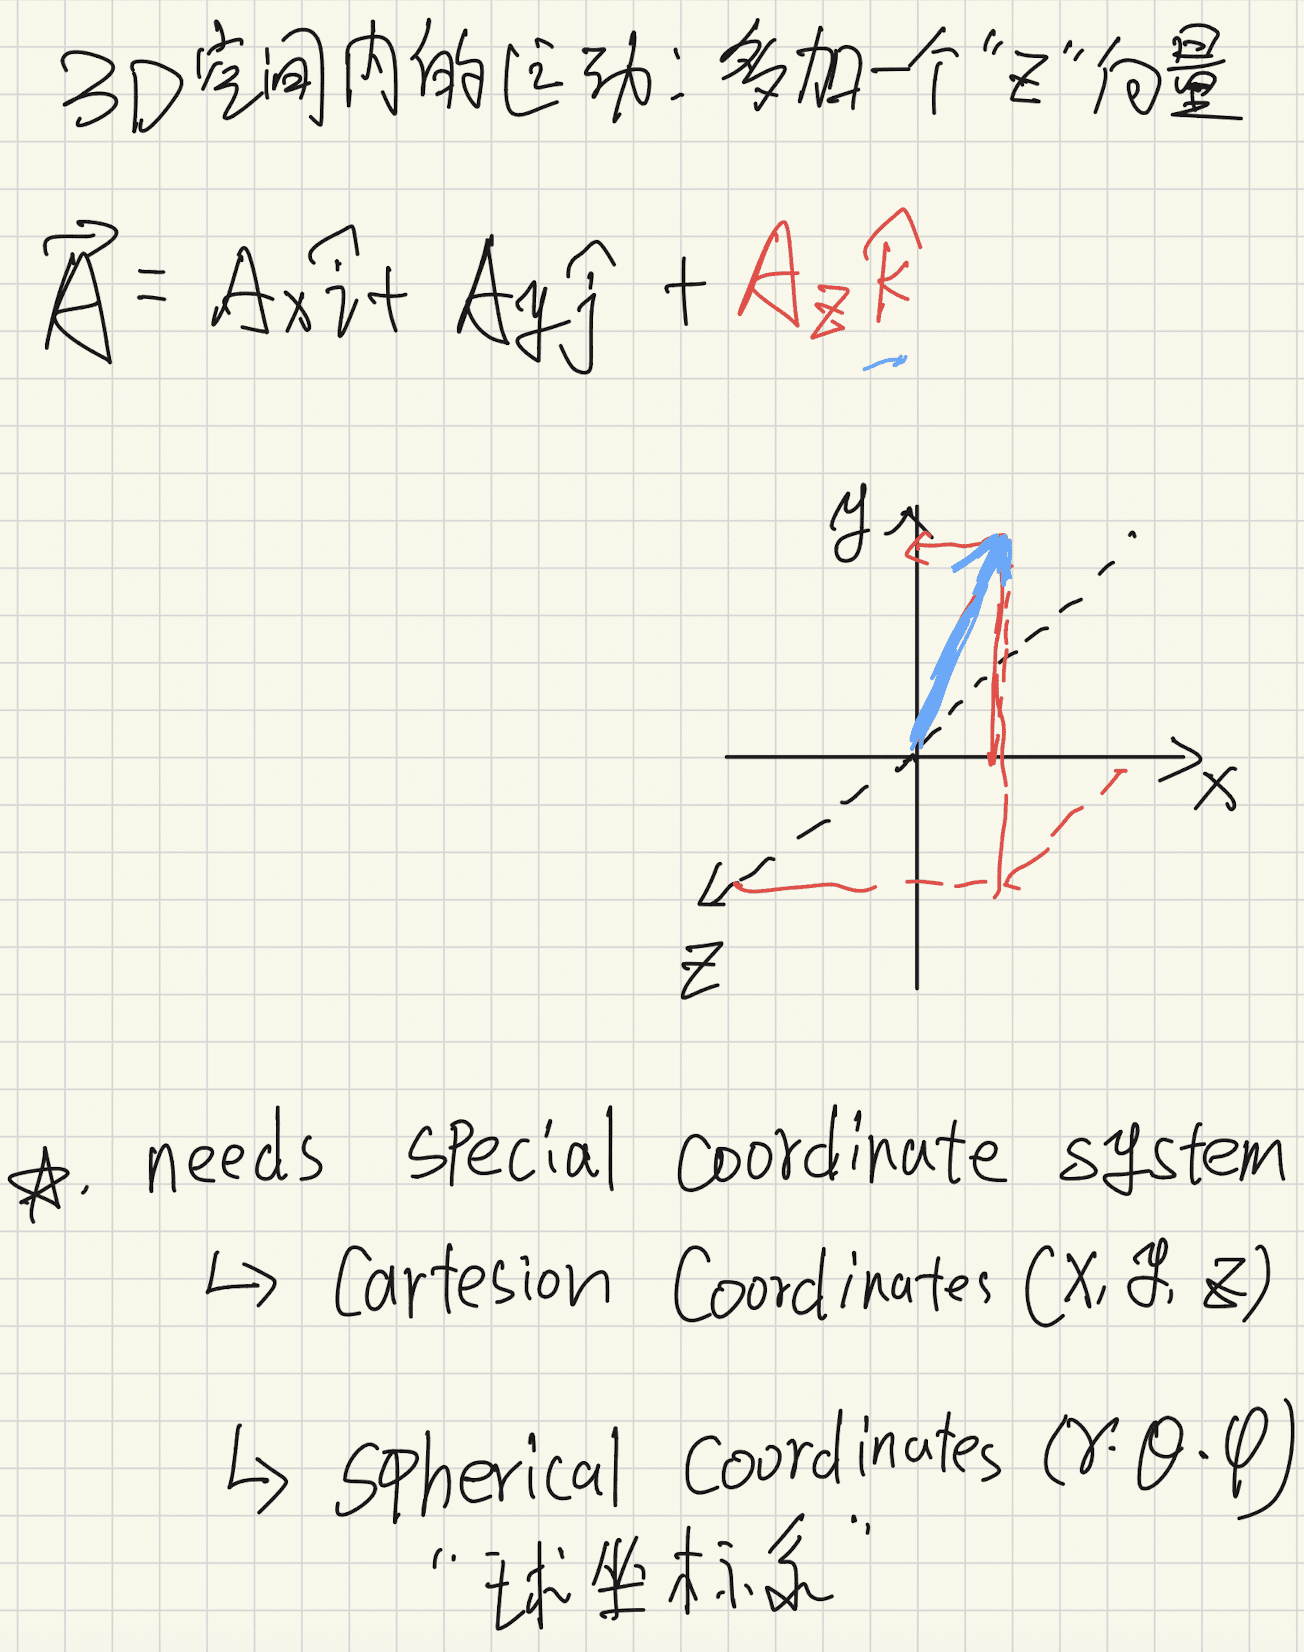 3D空间内的运动：多加一个“z”向量
A⃗ = Axî + Ayĵ + Azk̂
y
x
z
☆. needs special coordinate system
↳ Cartesion Coordinates (x, y, z)
↳ Spherical Coordinates (r. θ. φ)
“球坐标系”